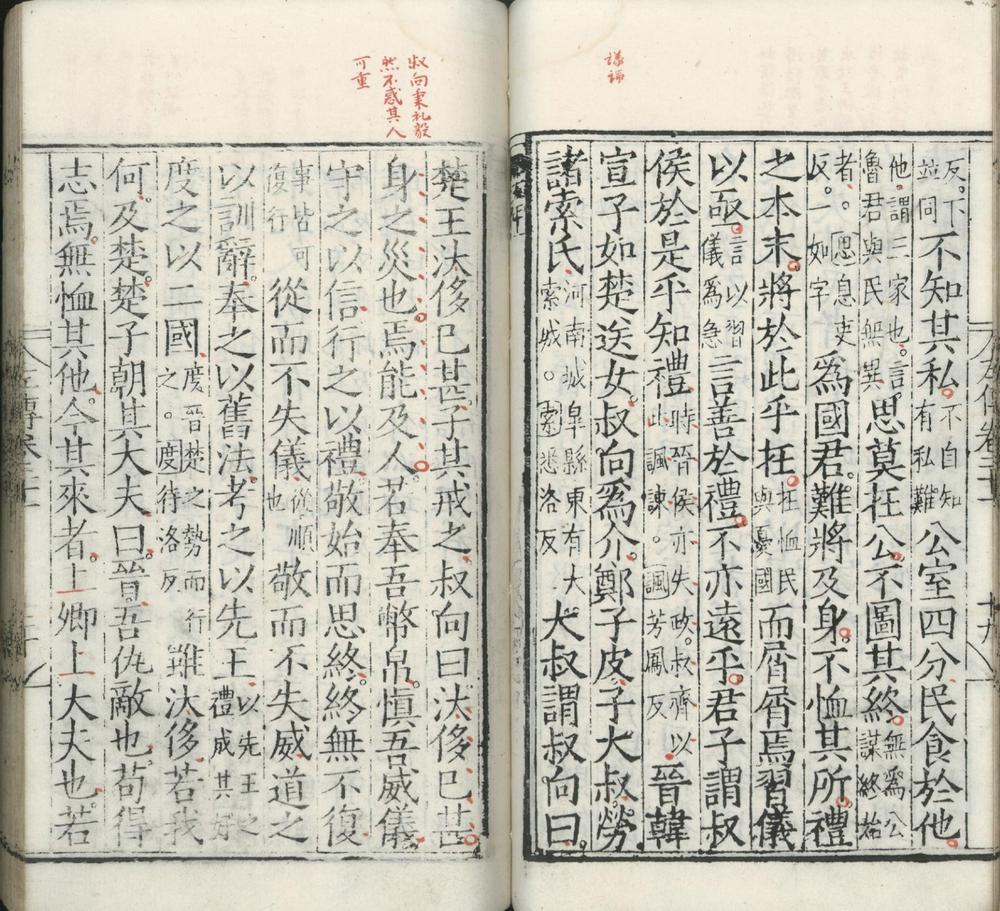 樣諦
反下並同不知其私不自知有私難公室四分民食於他
他謂三家也言魯君與民無異思莫在公不圖其終無爲公謀終始
者。思息吏反一如字爲國君難將及身不恤其所禮
之本末將於此乎在在恤民與憂國而屑屑焉習儀
以亟言以習儀爲急言善於禮不亦遠乎君子謂叔
侯於是乎知禮時晉侯亦失政叔齊以此諷諫。諷芳鳳反晉韓
宣子如楚送女叔向爲介鄭子皮子大叔勞
諸索氏河南成皋縣東有大索城。索悉洛反大叔謂叔向曰
叔向秉礼毅
然不惑其人
可重
楚王汏侈已甚子其戒之叔向曰汏侈已甚
身之災也焉能及人若奉吾幣帛愼吾威儀
守之以信行之以禮敬始而思終終無不復
事皆可復行從而不失儀從順也敬而不失威道之
以訓辭奉之以舊法考之以先王以先王之禮成其好
度之以二國度晉楚之勢而行之。度待洛反雖汏侈若我
何及楚楚子朝其大夫曰晉吾仇敵也苟得
志焉無恤其他今其來者上卿上大夫也若